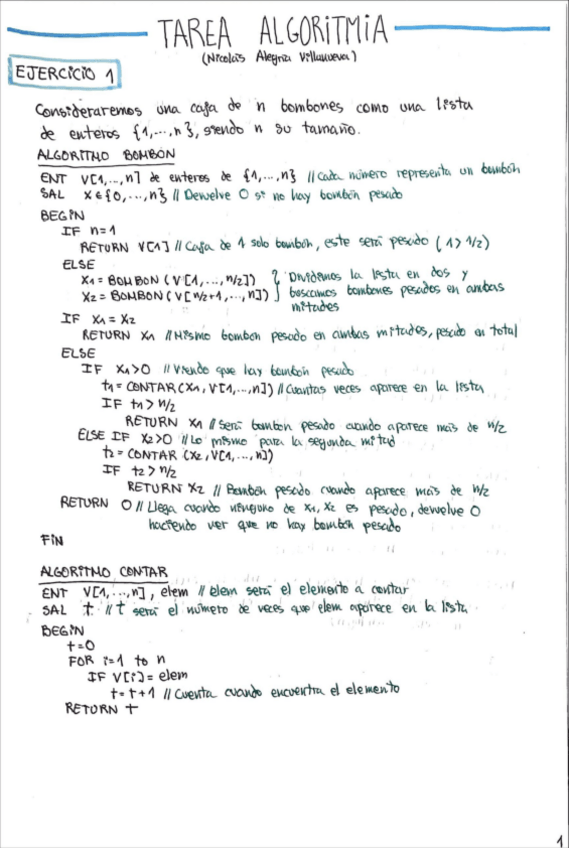 TAREA ALGORITMIA
(Nicolás Alegría Villanueva)
EJERCICIO 1
Consideraremos una caja de n bombones como una lista
de enteros {1,...,n}, siendo n su tamaño.
ALGORITMO BOMBÓN
ENT V[1,...,n] de enteros de {1,...,n} // Cada número representa un bombón
SAL X∈{0,...,n} // Devuelve 0 si no hay bombón pesado
BEGIN
IF n=1
RETURN V[1] // Caja de 1 solo bombón, este será pesado (1>1/2)
ELSE
X1 = BOMBON (V[1,...,n/2]) } Dividimos la lista en dos y
X2 = BOMBON (V[n/2+1,...,n]) } buscamos bombones pesados en ambas
mitades
IF X1 = X2
RETURN X1 // Mismo bombón pesado en ambas mitades, pesado en total
ELSE
IF X1>0 // Viendo que hay bombón pesado
t1 = CONTAR(X1, V[1,...,n]) // Cuantas veces aparece en la lista
IF t1 > n/2
RETURN X1 // Será bombón pesado cuando aparece más de n/2
ELSE IF X2>0 // Lo mismo para la segunda mitad
t2 = CONTAR (X2, V[1,...,n])
IF t2 > n/2
RETURN X2 // Bombón pesado cuando aparece más de n/2
RETURN 0 // Llega cuando ninguno de X1, X2 es pesado, devuelve 0
haciendo ver que no hay bombón pesado
FIN
ALGORITMO CONTAR
ENT V[1,...,n], elem // elem será el elemento a contar
SAL t // t será el número de veces que elem aparece en la lista
BEGIN
t=0
FOR i=1 to n
IF V[i] = elem
t = t+1 // Cuenta cuando encuentra el elemento
RETURN t
1